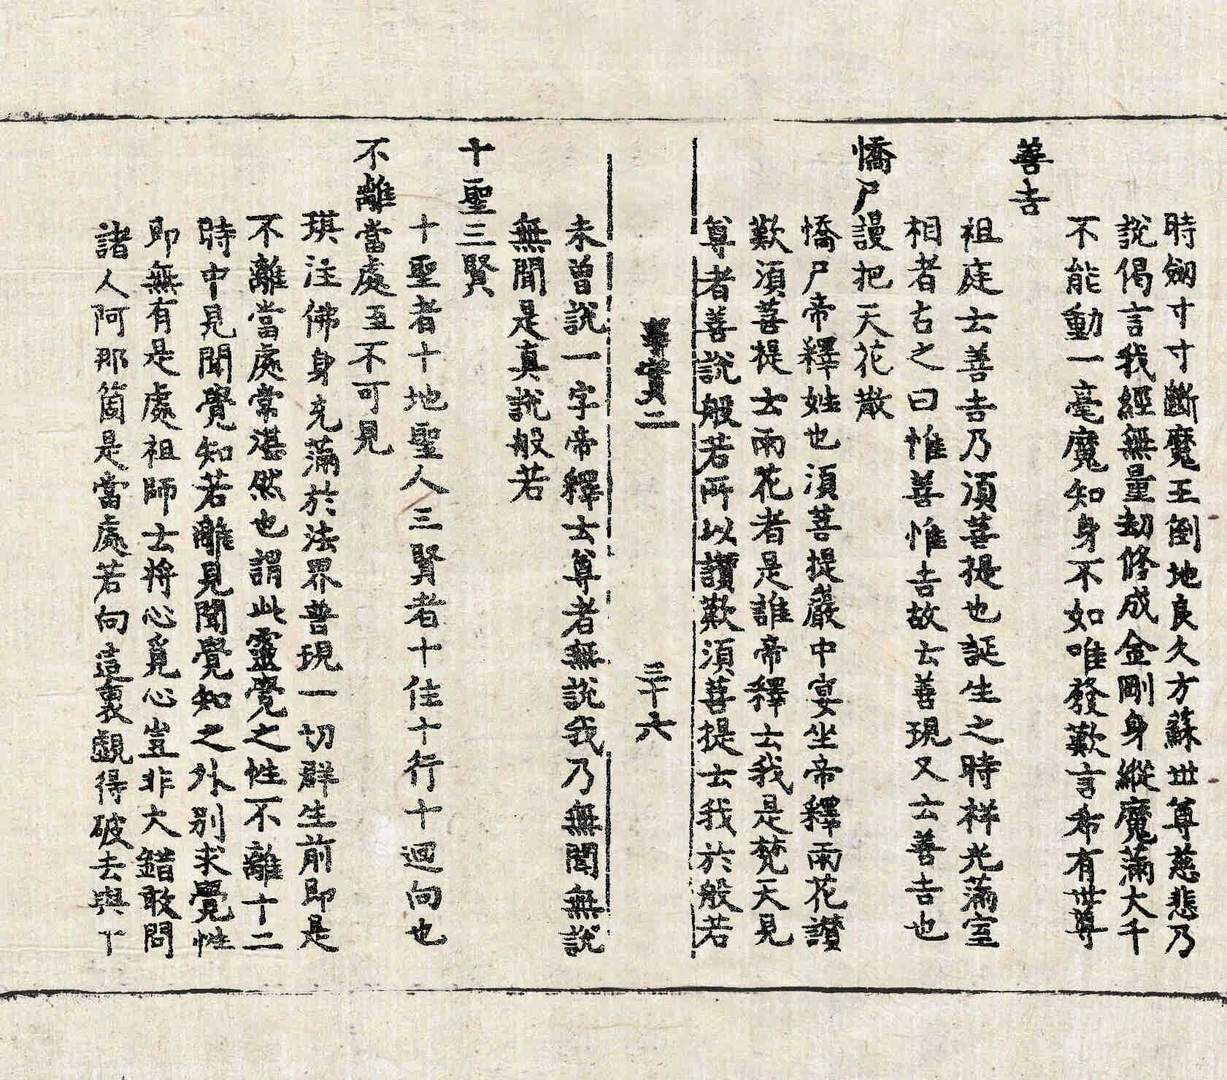 時劒寸寸斷魔王倒地良久方蘇世尊慈悲乃
說偈言我經無量劫修成金剛身縱魔滿大千
不能動一毫魔知身不如唯發歎言希有世尊
善吉
祖庭云善吉乃須菩提也誕生之時祥光滿室
相者占之曰惟善惟吉故云善現又云善吉也
憍尸謾把天花散
憍尸帝釋姓也須菩提巖中宴坐帝釋雨花讚
歎須菩提云雨花者是誰帝釋云我是梵天見
尊者善說般若所以讚歎須菩提云我於般若
實二
三十六
未曾說一字帝釋云尊者無說我乃無聞無說
無聞是真說般若
十聖三賢
十聖者十地聖人三賢者十住十行十迴向也
不離當處至不可見
琪注佛身充滿於法界普現一切群生前即是
不離當處常湛然也謂此靈覺之性不離十二
時中見聞覺知若離見聞覺知之外別求覺性
即無有是處祖師云將心覓心豈非大錯敢問
諸人阿那箇是當處若向這裏覷得破去與